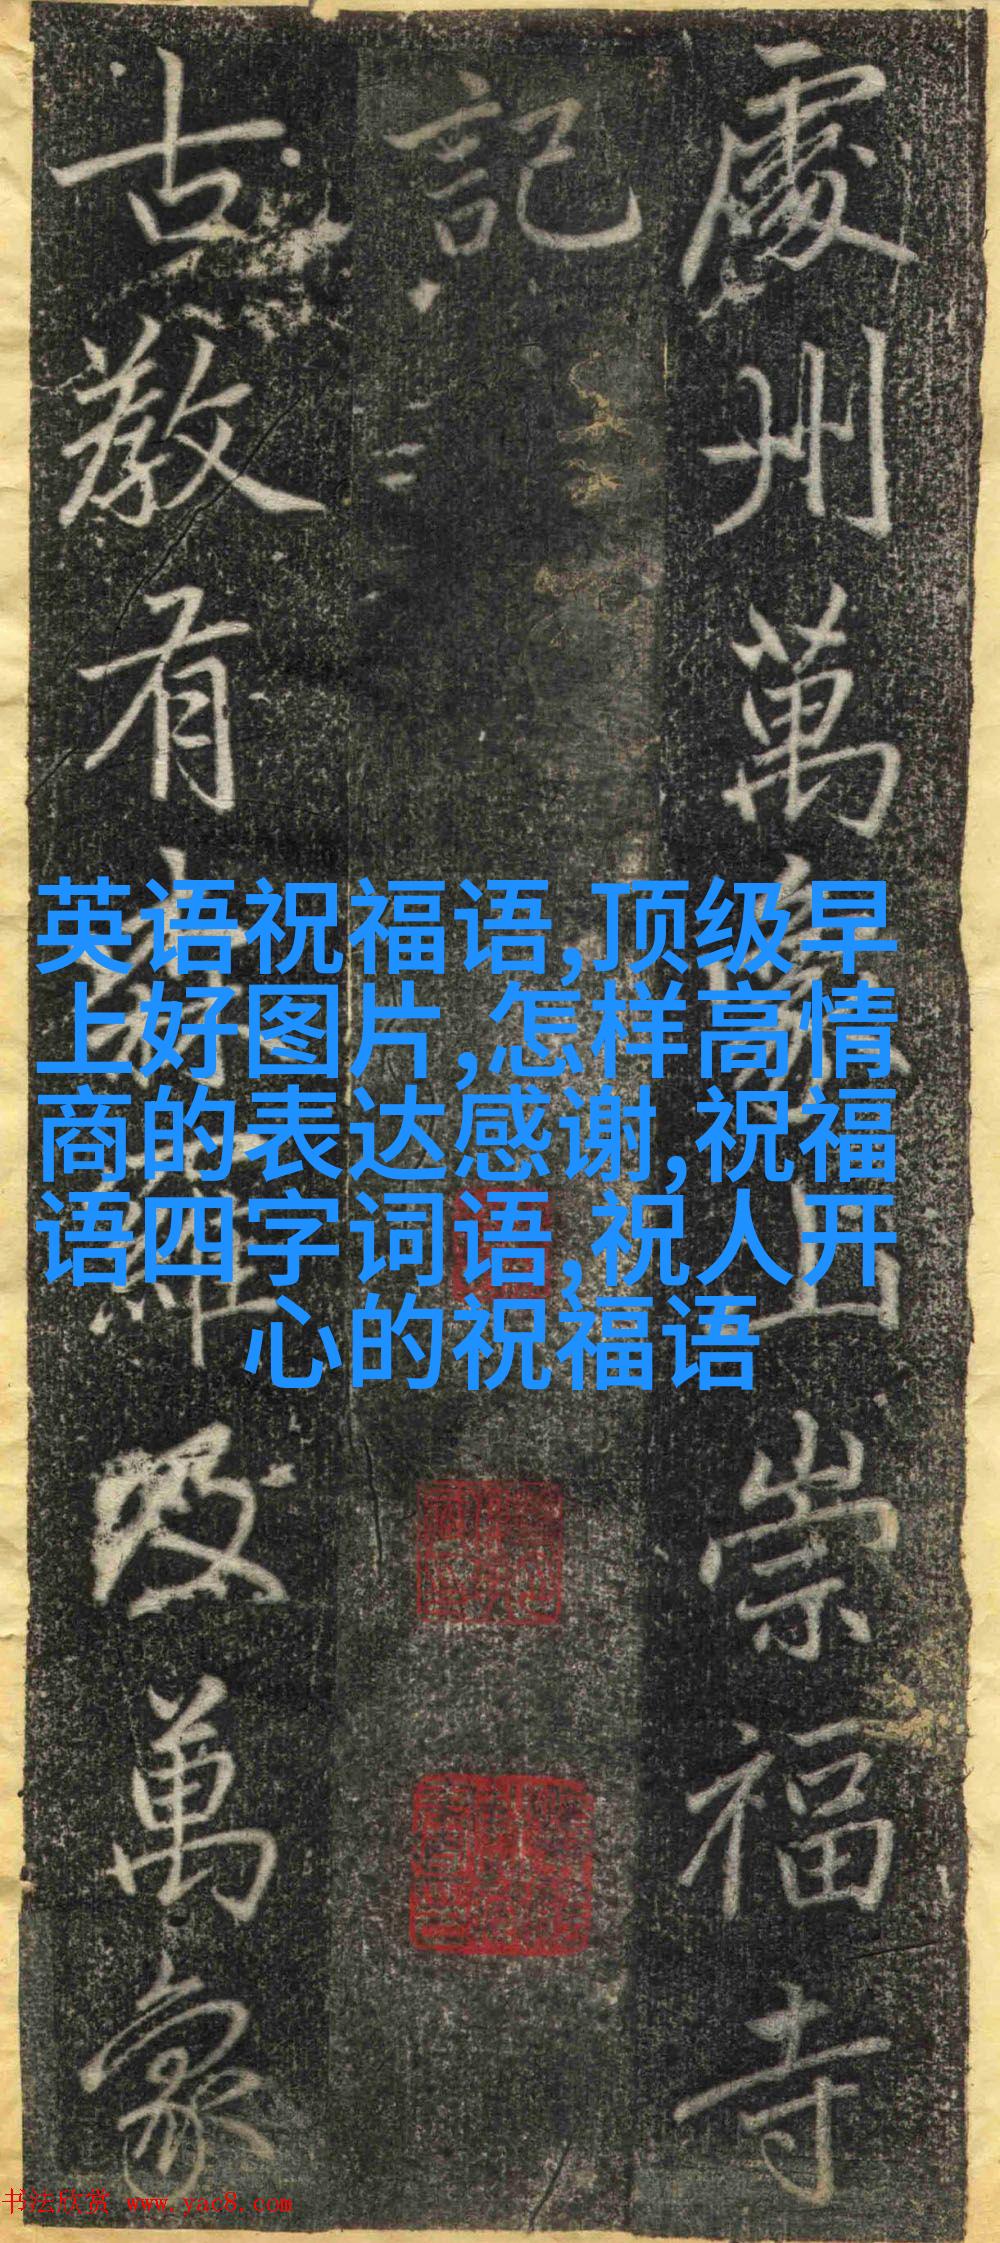 處州萬象山崇福寺
記
古教有
及萬象
英语祝福语,顶级早
上好图片,怎样高情
商的表达感谢,祝福
语四字词语,祝人开
心的祝福语
书法欣赏 www.yac8.com